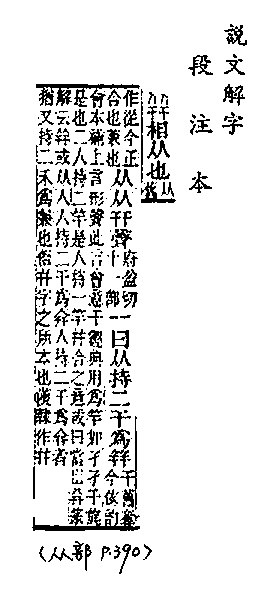 說文解字
段注本
相从也从舊
作從今正
合也兼也
从从幵聲
府盈切
十一部
一曰从持二干爲幷
會本補上言形聲此言會意干經典用爲竿如孑孑干旄
是也二人持二竿是人持一竿幷合之意或曰當出幷篆
解云幷或从人人持二干爲幷人持二干爲幷者
猶又持二禾爲兼也
幷字之所本也後隸作并
(从部 P.390)